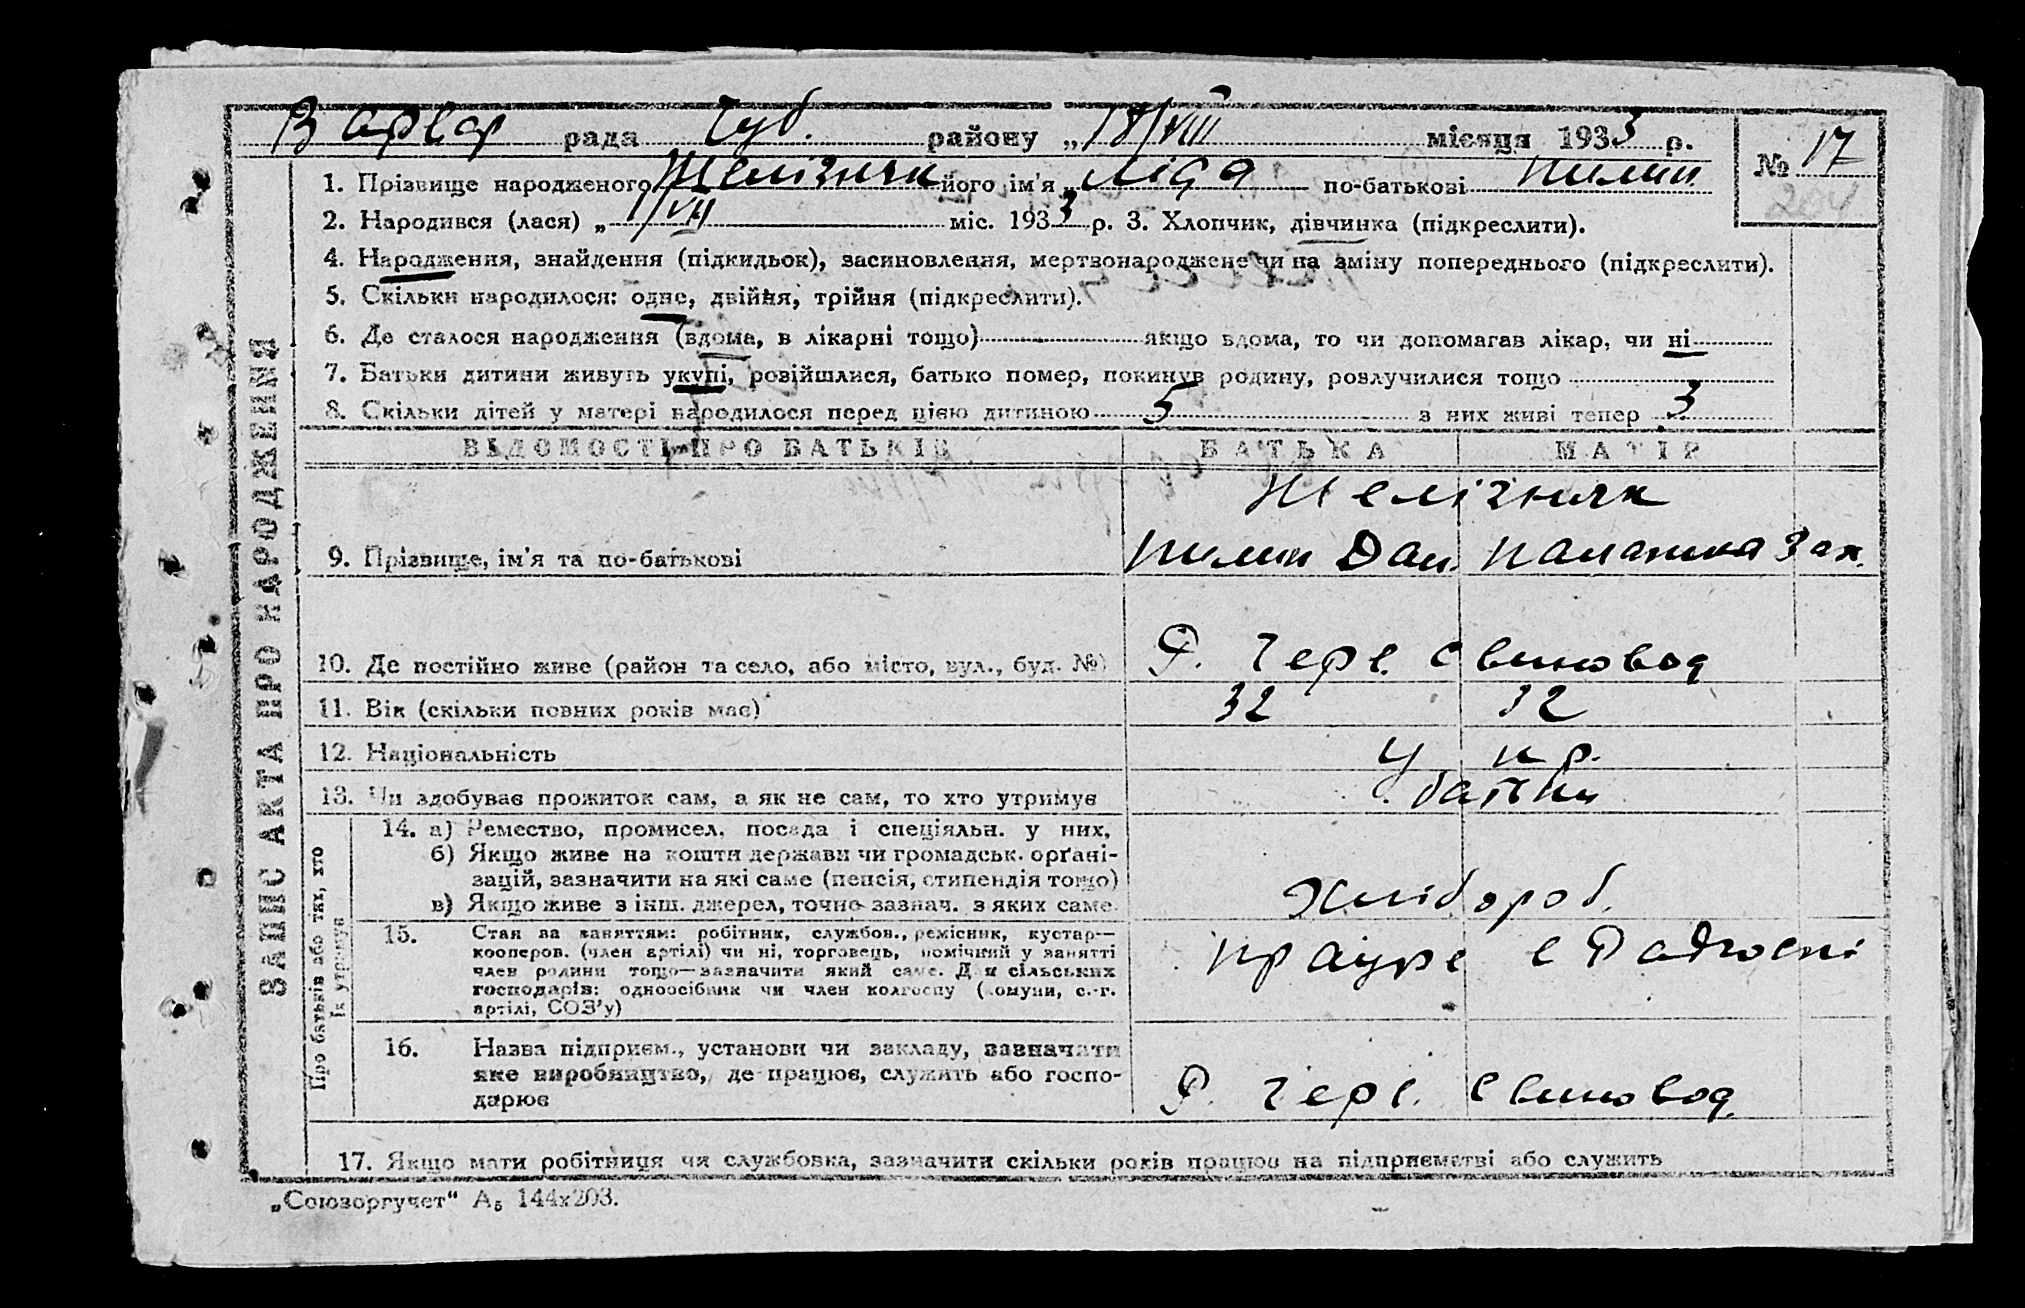 Варвар рада Чуб. району „18/VIII місяця 1933 р.
№ 17
204
1. Прізвище народженого Желізняк його ім'я „Ліда по-батькові Пилип.
2. Народився (лася) „1/VII міс. 1933 р. 3. Хлопчик, дівчинка (підкреслити).
4. Народження, знайдення (підкидьок), засиновлення, мертвонароджене чи на зміну попереднього (підкреслити).
5. Скільки народилося: одне, двійня, трійня (підкреслити).
6. Де сталося народження (вдома, в лікарні тощо) якщо вдома, то чи допомагав лікар, чи ні
7. Батьки дитини живуть укупі, розійшлися, батько помер, покинув родину, розлучилися тощо
8. Скільки дітей у матері народилося перед цією дитиною 5 з них живі тепер 3
ВІДОМОСТІ ПРО БАТЬКІВ БАТЬКА МАТІР
Желізняк
9. Прізвище, ім'я та по-батькові Пилип Дан. Палашка Зах.
10. Де постійно живе (район та село, або місто, вул., буд. №) Р. Черв. Свиновод
11. Вік (скільки повних років має) 32 32
12. Національність Укр.
13. Чи здобуває прожиток сам, а як не сам, то хто утримує батьки
14. а) Ремество, промисел, посада і спеціяльн. у них,
б) Якщо живе на кошти держави чи громадськ. орґані-
зацій, зазначити на які саме (пенсія, стипендія тощо)
в) Якщо живе з інш. джерел, точно зазнач. з яких саме. Хлібороб.
15. Стан за заняттям: робітник, службов., ремісник, кустар—
кооперов. (член артілі) чи ні, торговець, помічний у занятті
член родини тощо—зазначити який саме. Для сільських
господарів: одноосібник чи член колгоспу (комуни, с.-г.
артілі, СОЗ'у)
працює в Радгоспі
16. Назва підприєм., установи чи закладу, зазначити
яке виробництво, де працює, служить або госпо-
дарює
Р. Черв. Свиновод
17. Якщо мати робітниця чи службовка, зазначити скільки років працює на підприємстві або служить
ЗАПИС АКТА ПРО НАРОДЖЕННЯ
Про батьків або тих, хто
їх утримує
„Союзоргучет“ А₅ 144х203.